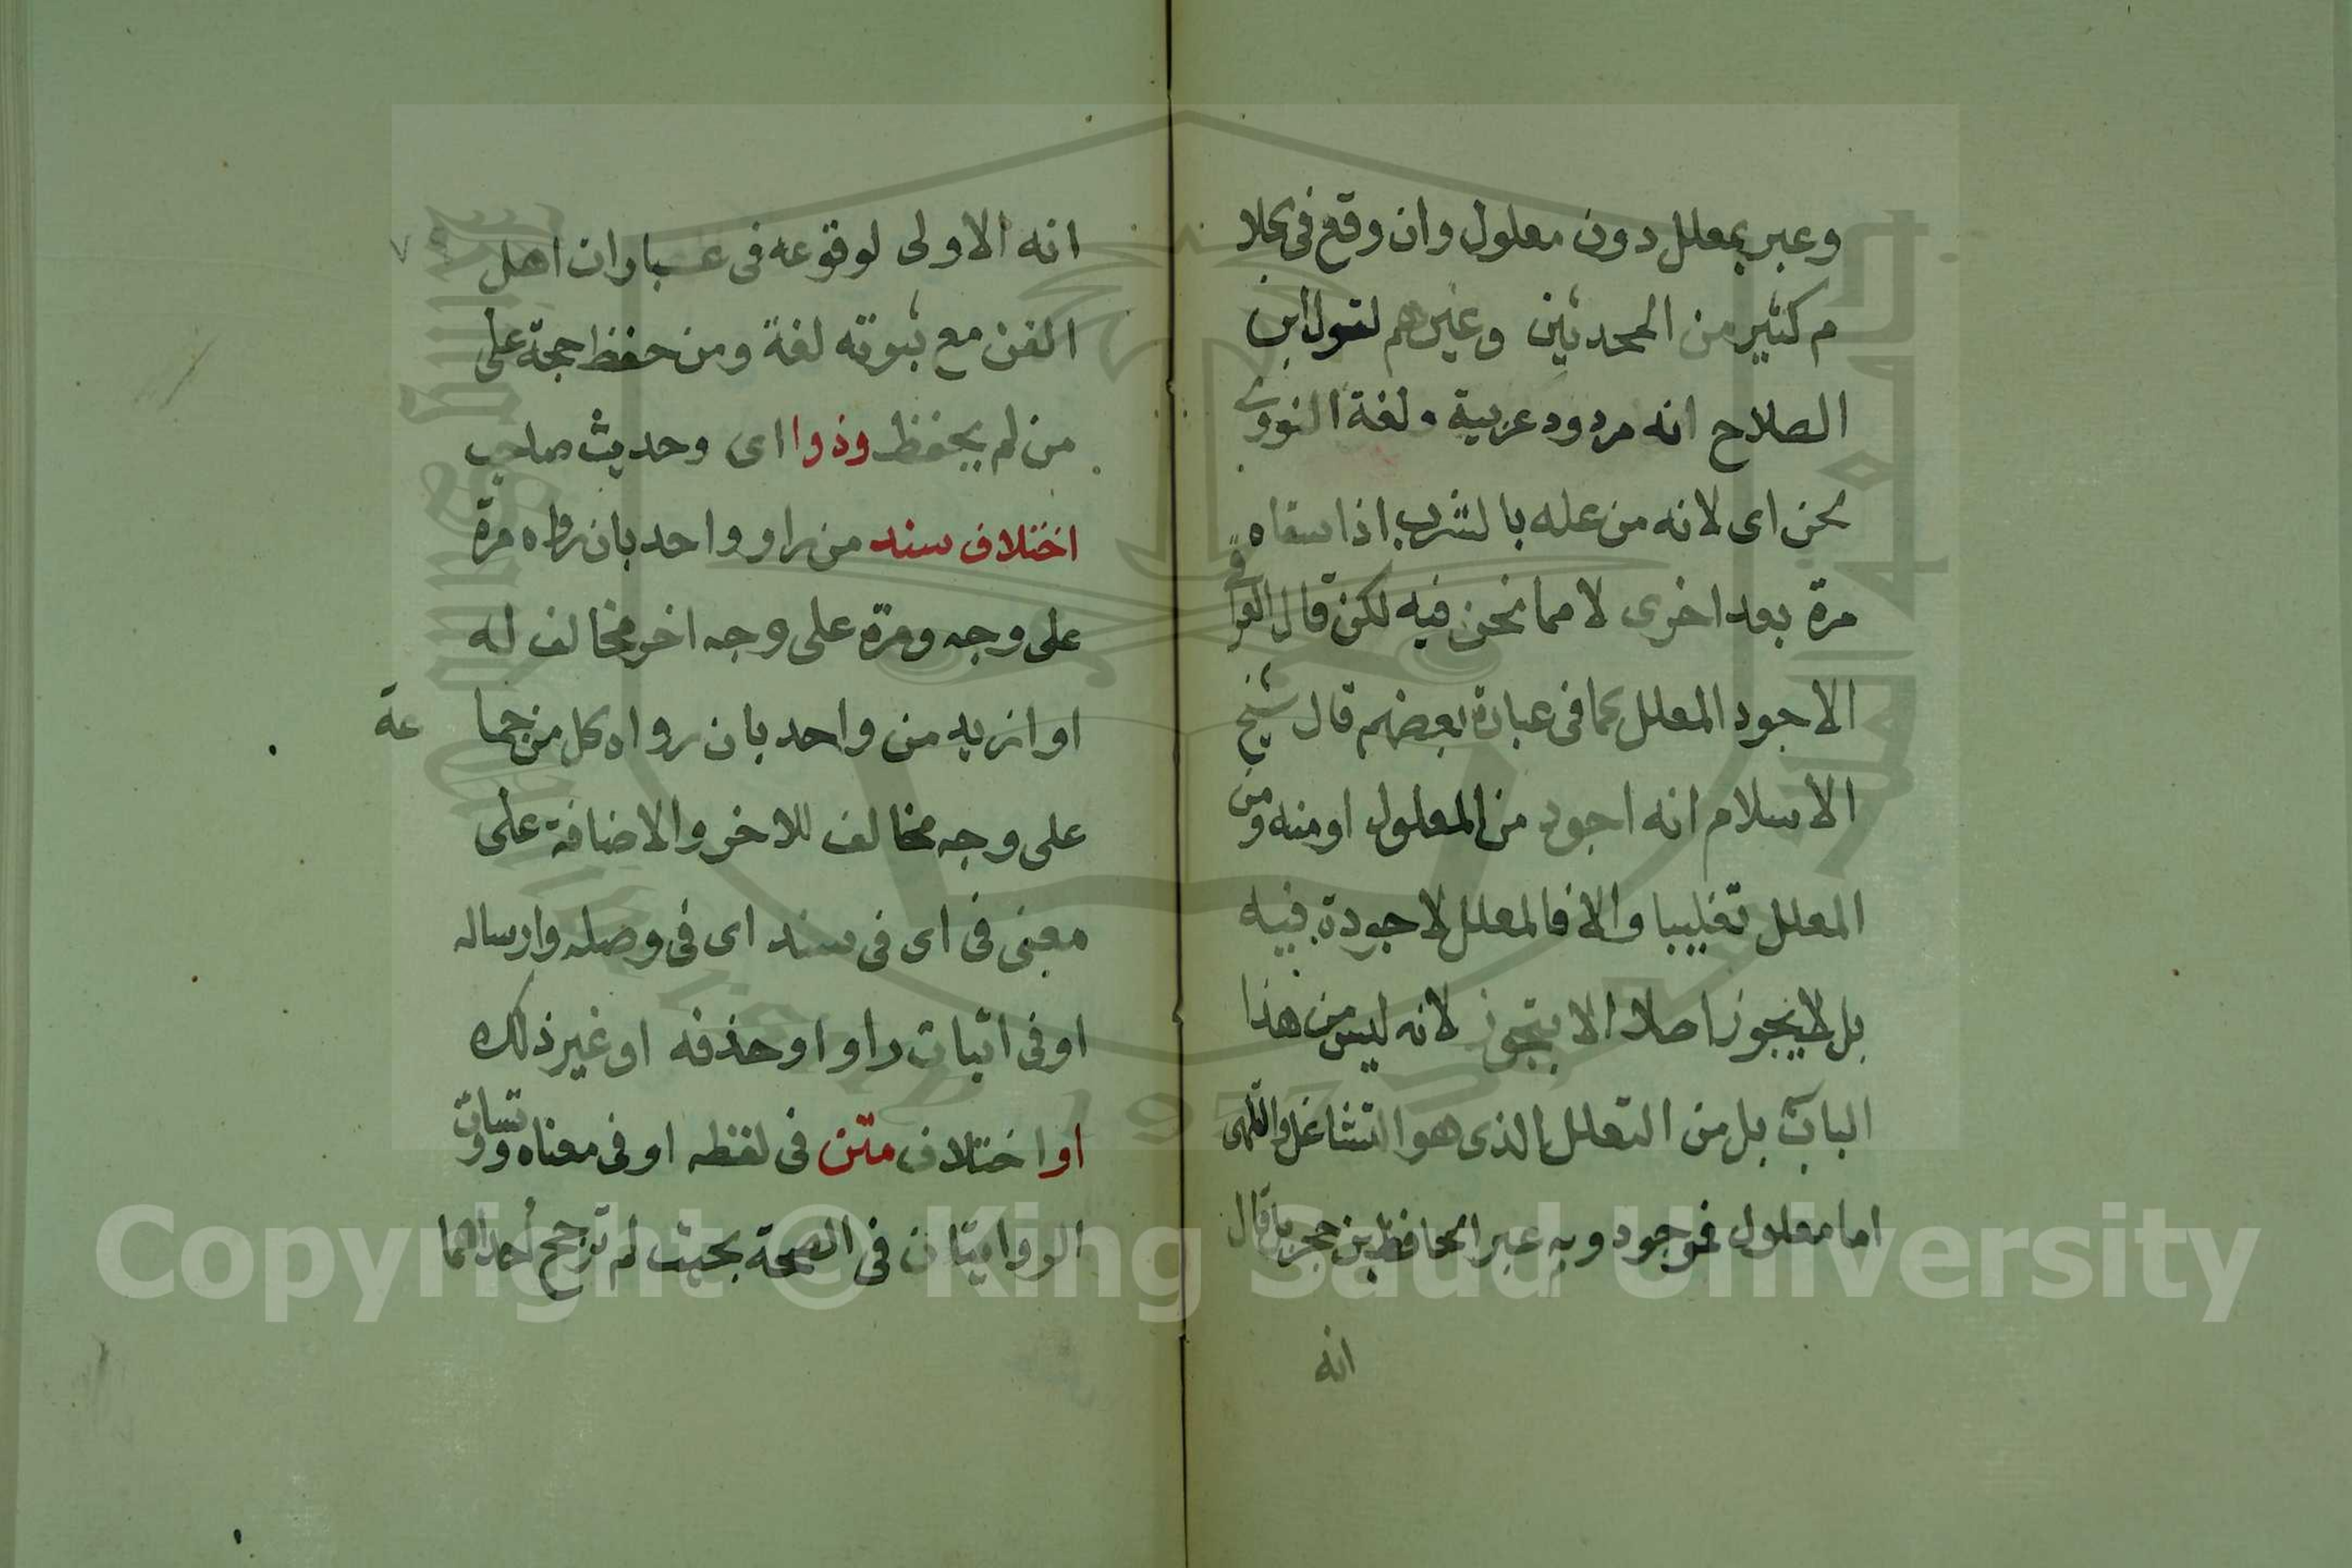 وعبر بمعلل دون معلول وان وقع فى كلا
م كثير من المحدثين وغيرهم لقول ابن
الصلاح انه مردود عربية ولغة النووى
لحن اى لانه من عله بالشرب اذا سقاه
مرة بعد اخرى لا مما نحن فيه لكن قال العراقى
الاجود المعلل كما فى عبارة بعضهم قال شيخ
الاسلام انه اجود من المعلول او منه ومن
المعلل تغليبا والا فالمعلل لا جودة فيه
بل لا يجوز اصلا الا بتجوز لانه ليس من هذا
الباب بل من التعلل الذى هو التشاغل والتلهى
اما معلول فموجود وبه عبر الحافظ بن حجر بل قال
انه
٧٩
انه الاولى لوقوعه فى عبارات اهل
الفن مع ثبوته لغة ومن حفظ حجة على
من لم يحفظ وذوا اى وحديث صاحب
اختلاف سند من راو واحد بان رواه مرة
على وجه ومرة على وجه اخر مخالف له
او ازيد من واحد بان رواه كل من جما عة
على وجه مخالف للاخر والاضافة على
معنى فى اى فى سند اى فى وصله وارساله
او فى اثبات راو او حذفه او غير ذلك
او اختلاف متن فى لفظه او فى معناه وتساوت
الروايتان فى الصحة بحيث لم ترجح احداهما
Copyright © King Saud University
1957